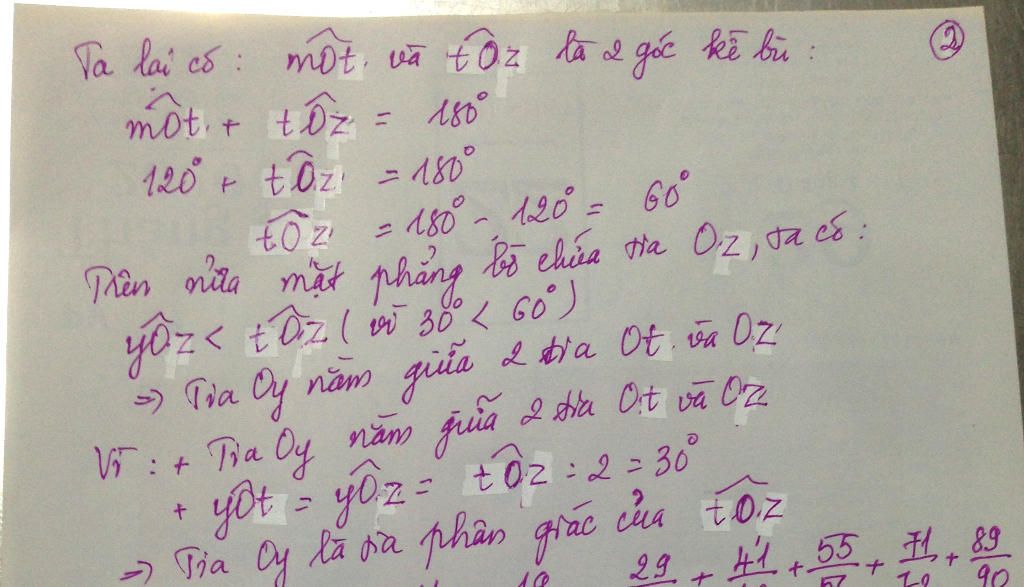 ②
Ta lại có : mÔt và tÔz là 2 góc kề bù :
mÔt + tÔz = 180°
120° + tÔz = 180°
tÔz = 180° - 120° = 60°
Trên nửa mặt phẳng bờ chứa tia Oz, ta có :
yÔz < tÔz ( vì 30° < 60° )
=> Tia Oy nằm giữa 2 tia Ot và Oz
Vì : + Tia Oy nằm giữa 2 tia Ot và Oz
+ yÔt = yÔz = tÔz : 2 = 30°
=> Tia Oy là tia phân giác của tÔz
19 29 + 41 + 55 + 71 + 89/90